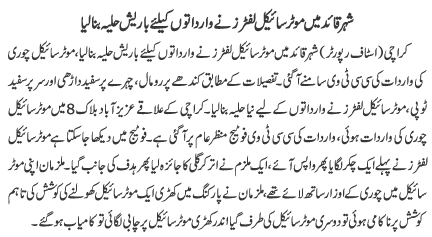 شہر قائد میں موٹر سائیکل لفٹرز نے وارداتوں کیلئے باریش حلیہ بنالیا
کراچی (اسٹاف رپورٹر) شہر قائد میں موٹر سائیکل لفٹرز نے وارداتوں کیلئے باریش حلیہ بنالیا، موٹر سائیکل چوری
کی واردات کی سی سی ٹی وی سامنے آگئی۔ تفصیلات کے مطابق کندھے پر رومال، چہرے پر سفید داڑھی اور سر پر سفید
ٹوپی، موٹر سائیکل لفٹرز نے وارداتوں کے لیے نیا حلیہ بنالیا۔ کراچی کے علاقے عزیز آباد بلاک 8 میں موٹر سائیکل
چوری کی واردات ہوئی، واردات کی سی سی ٹی وی فوٹیج منظر عام پر آگئی ہے۔ فوٹیج میں دیکھا جاسکتا ہے موٹر سائیکل
لفٹرز نے پہلے ایک چکر لگایا پھر واپس آئے، ایک ملزم نے اتر کر گلی کا جائزہ لیا پھر ہدف کی جانب گیا۔ ملزمان اپنی موٹر
سائیکل میں چوری کے اوزار ساتھ لائے تھے، ملزمان نے پارکنگ میں کھڑی ایک موٹر سائیکل کھولنے کی کوشش کی تاہم
کوشش پر ناکامی ہوئی تو دوسری موٹر سائیکل کی طرف گیا اندر کھڑی موٹر سائیکل پر چابی لگائی تو کامیاب ہوگئے۔